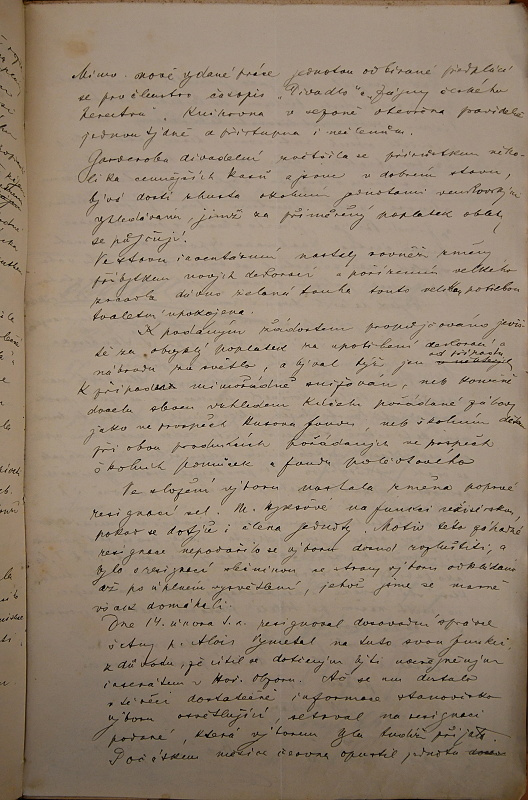 Mimo nově vydané práce jednotou odbírané předplácí
se pro členstvo časopis „Divadlo“ a „Zájmy českého
herectva. Knihovna v sezoně otevřena pravidelně
jednou týdně a přístupna i nečlenům.
Garderoba divadelní rozšířila se přírůstkem něko-
lika cennějších kusů a jsouc v dobrém stavu,
bývá dosti zhusta okolními jednotami venkovskými
vyhledávána, jimž za přiměřený poplatek obleky
se půjčují.
Ve stavu inventárním nastaly rovněž změny
přibytkem nových dekorací a pořízením velkého
zrcadla dávno želaná touha touto velikou potřebou
toaletní upokojena.
K podaným žádostem propůjčováno jeviš-
tě za obvyklý poplatek za upotřebení dekorací a
náhradu za světlo, a býval týž, jen od případu
k případu mimořádně snižován, neb konečně
docela sleven vzhledem k účelu pořádané zábavy
jako ve prospěch Husova fondu, neb školním dětem
při obou produkcích pořádaných ve prospěch
školních pomůcek a fondu polévkového
Ve složení výboru nastala změna poprvé
resignací sl. M. na funkci
pokud se dotýče i člena jednoty. Motiv této záhadné
resignace nepodařilo se výboru dosud rozluštiti, a
bylo o resignaci se strany výboru odkládáno
až po úplném vysvětlení, jehož jsme se marně
však domáhali.
Dne 14. února t.r. resignoval dosavadní správce
p. Alois Vymetal na tuto svou funkci
z důvodu, že cítil se dotčeným býti uveřejněným
inserátem v Hoř. Obzoru. Ač se mu dostalo
dostatečné informace stanovisko
výboru osvětlující, setrval na resignaci
podané, která výborem byla tudíž přijata.
Počátkem měsíce června opustil jednotu